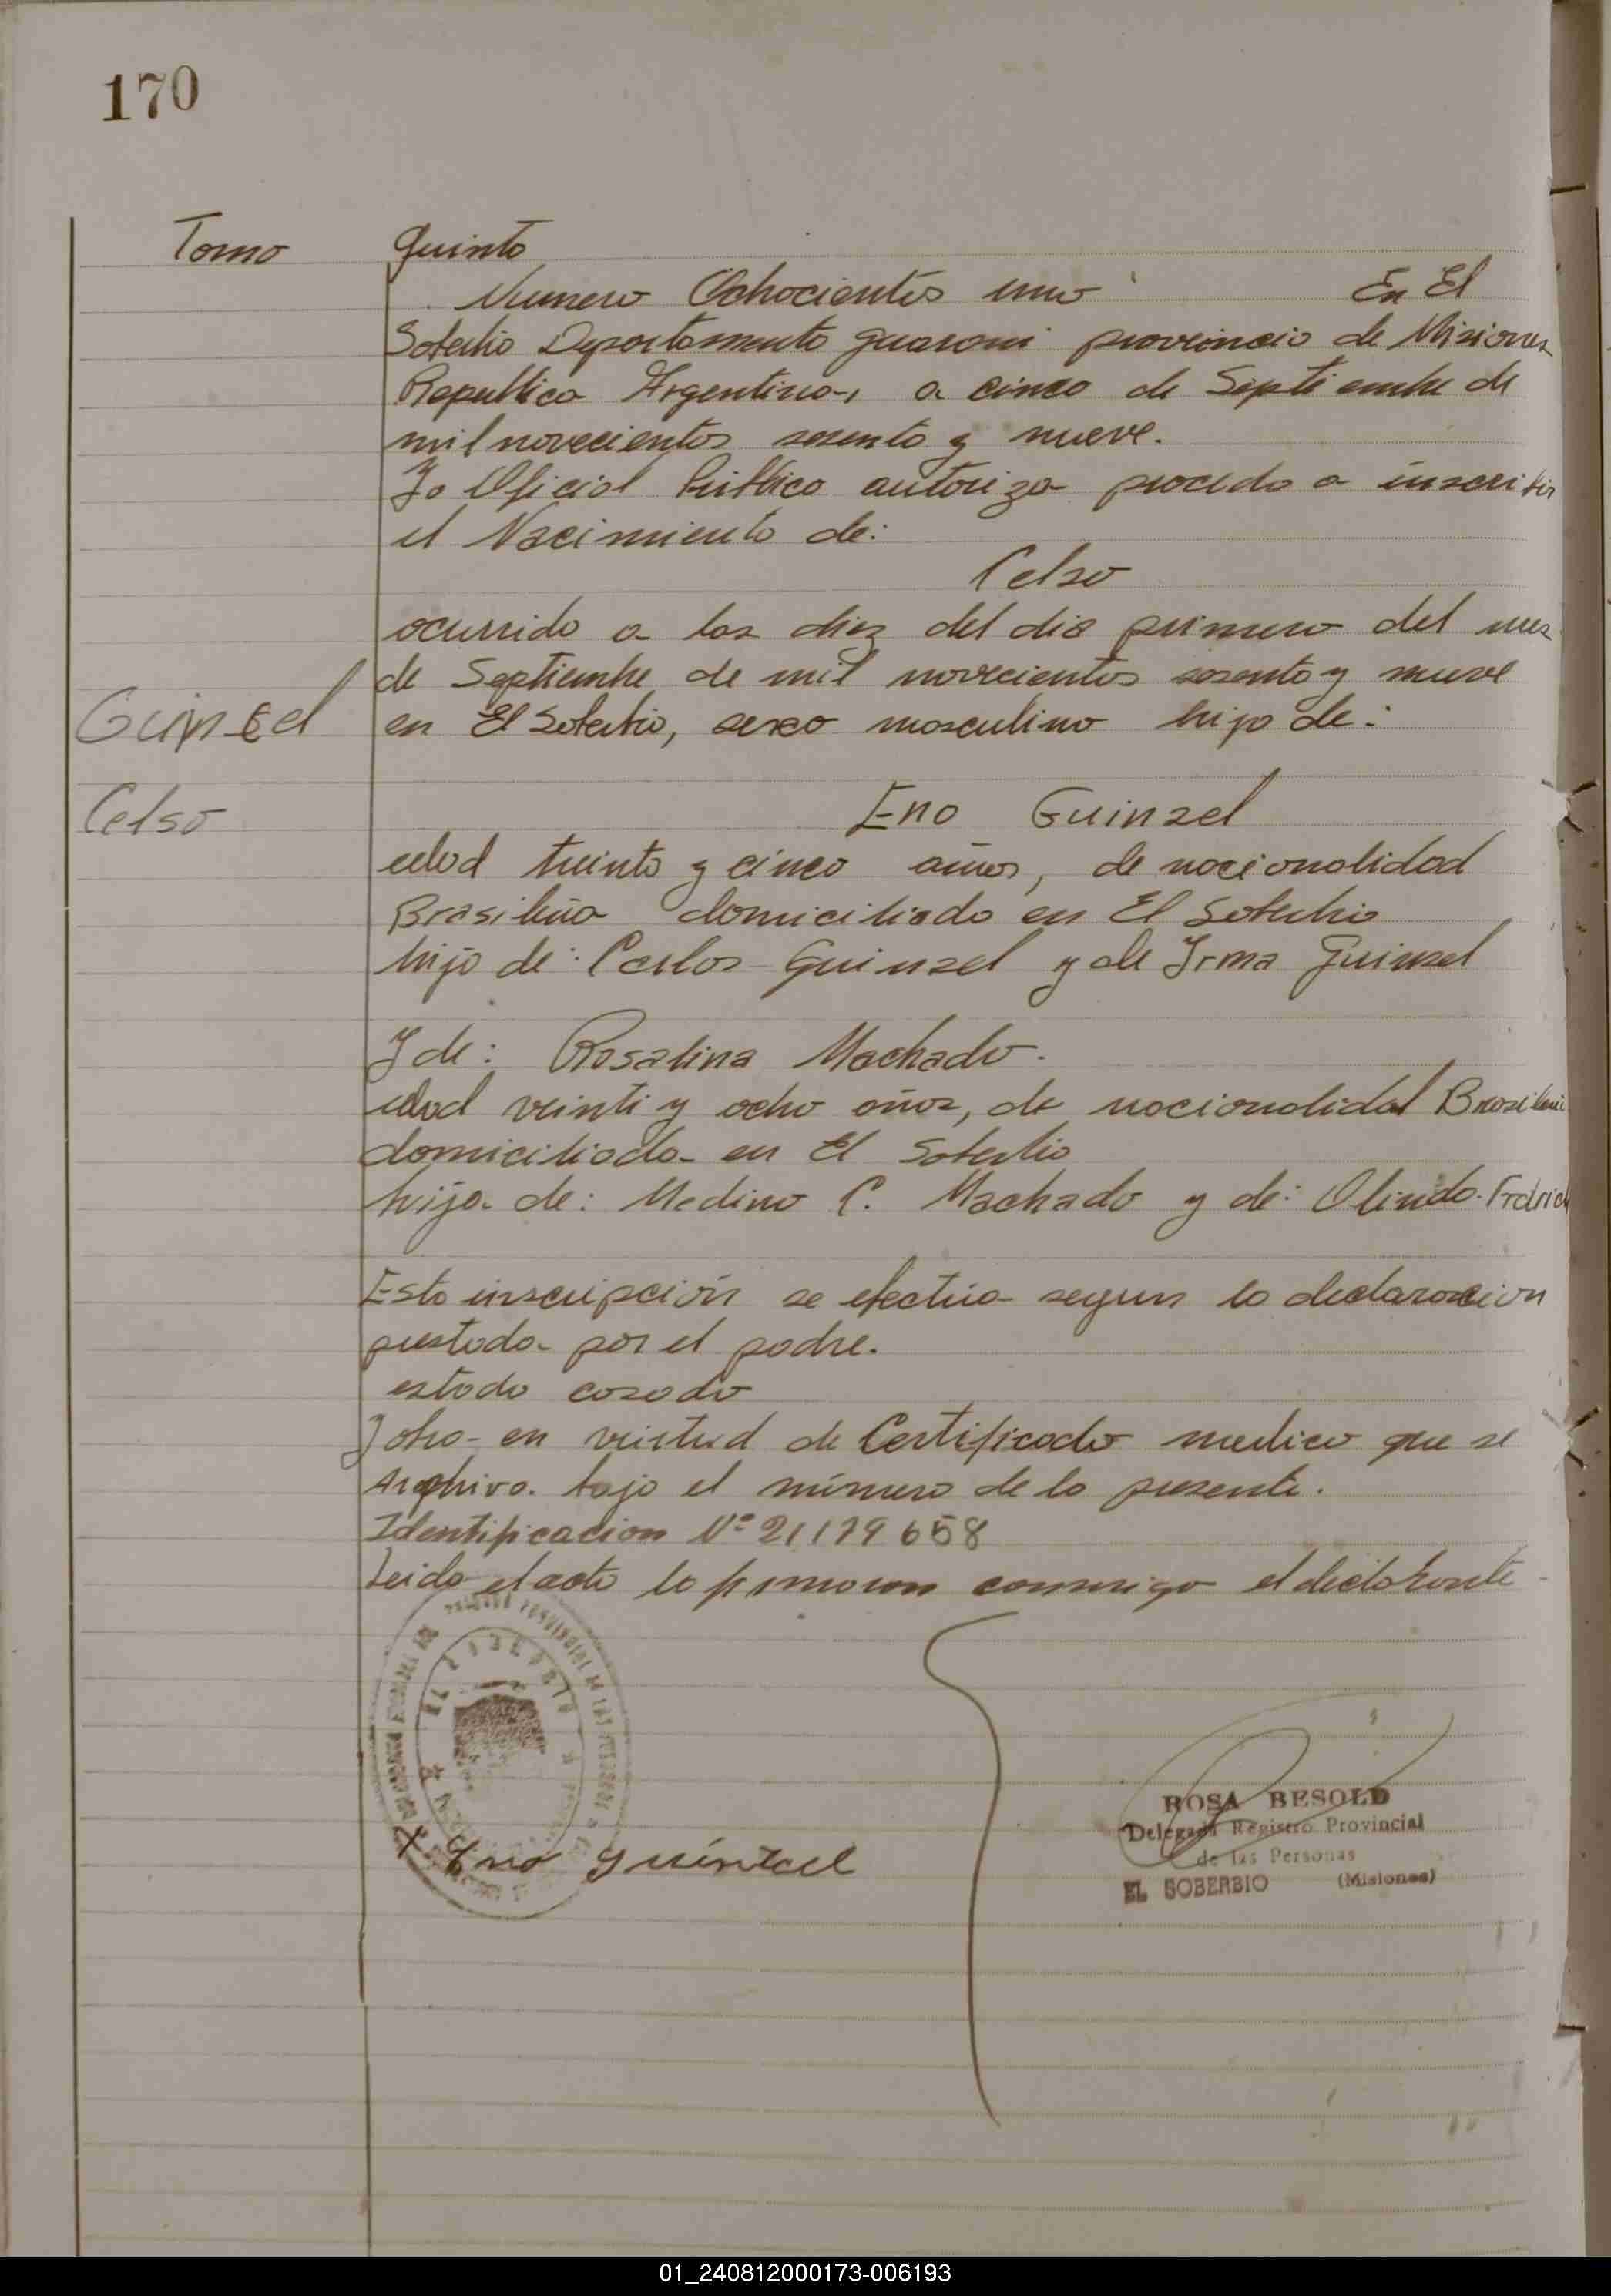 170
Tomo Quinto
Numero Ochocientos uno En El
Soberbio Departamento Guarani provincia de Misiones
Republica Argentina, a cinco de Septiembre de
mil novecientos sesenta y nueve.
Yo Oficial Público autoriza procedo a inscribir
el Nacimiento de:
Celso
ocurrido a las diez del dia primero del mes
de Septiembre de mil novecientos sesenta y nueve
Guinzel en El Soberbio, sexo masculino hijo de:
Celso
Eno Guinzel
edad treinta y cinco años, de nacionalidad
Brasileña domiciliado en El Soberbio
hijo de: Carlos Guinzel y de Irma Guinzel
Y de: Rosalina Machado.
edad veinti y ocho años, de nacionalidad Brasileña
domiciliada en El Soberbio
hija de: Medino C. Machado y de: Olinda
Esta inscripción se efectúa segun la declaración
prestada por el padre.
estado casado
Y otra en virtud de Certificado medico que se
Archiva bajo el número de la presente.
Identificacion Nº 21179658
Leida el acta la firmaron conmigo el declarante
Eno Guintzel
ROSA BESOLD
Delegada Registro Provincial
de las Personas
EL SOBERBIO (Misiones)
01_240812000173-006193